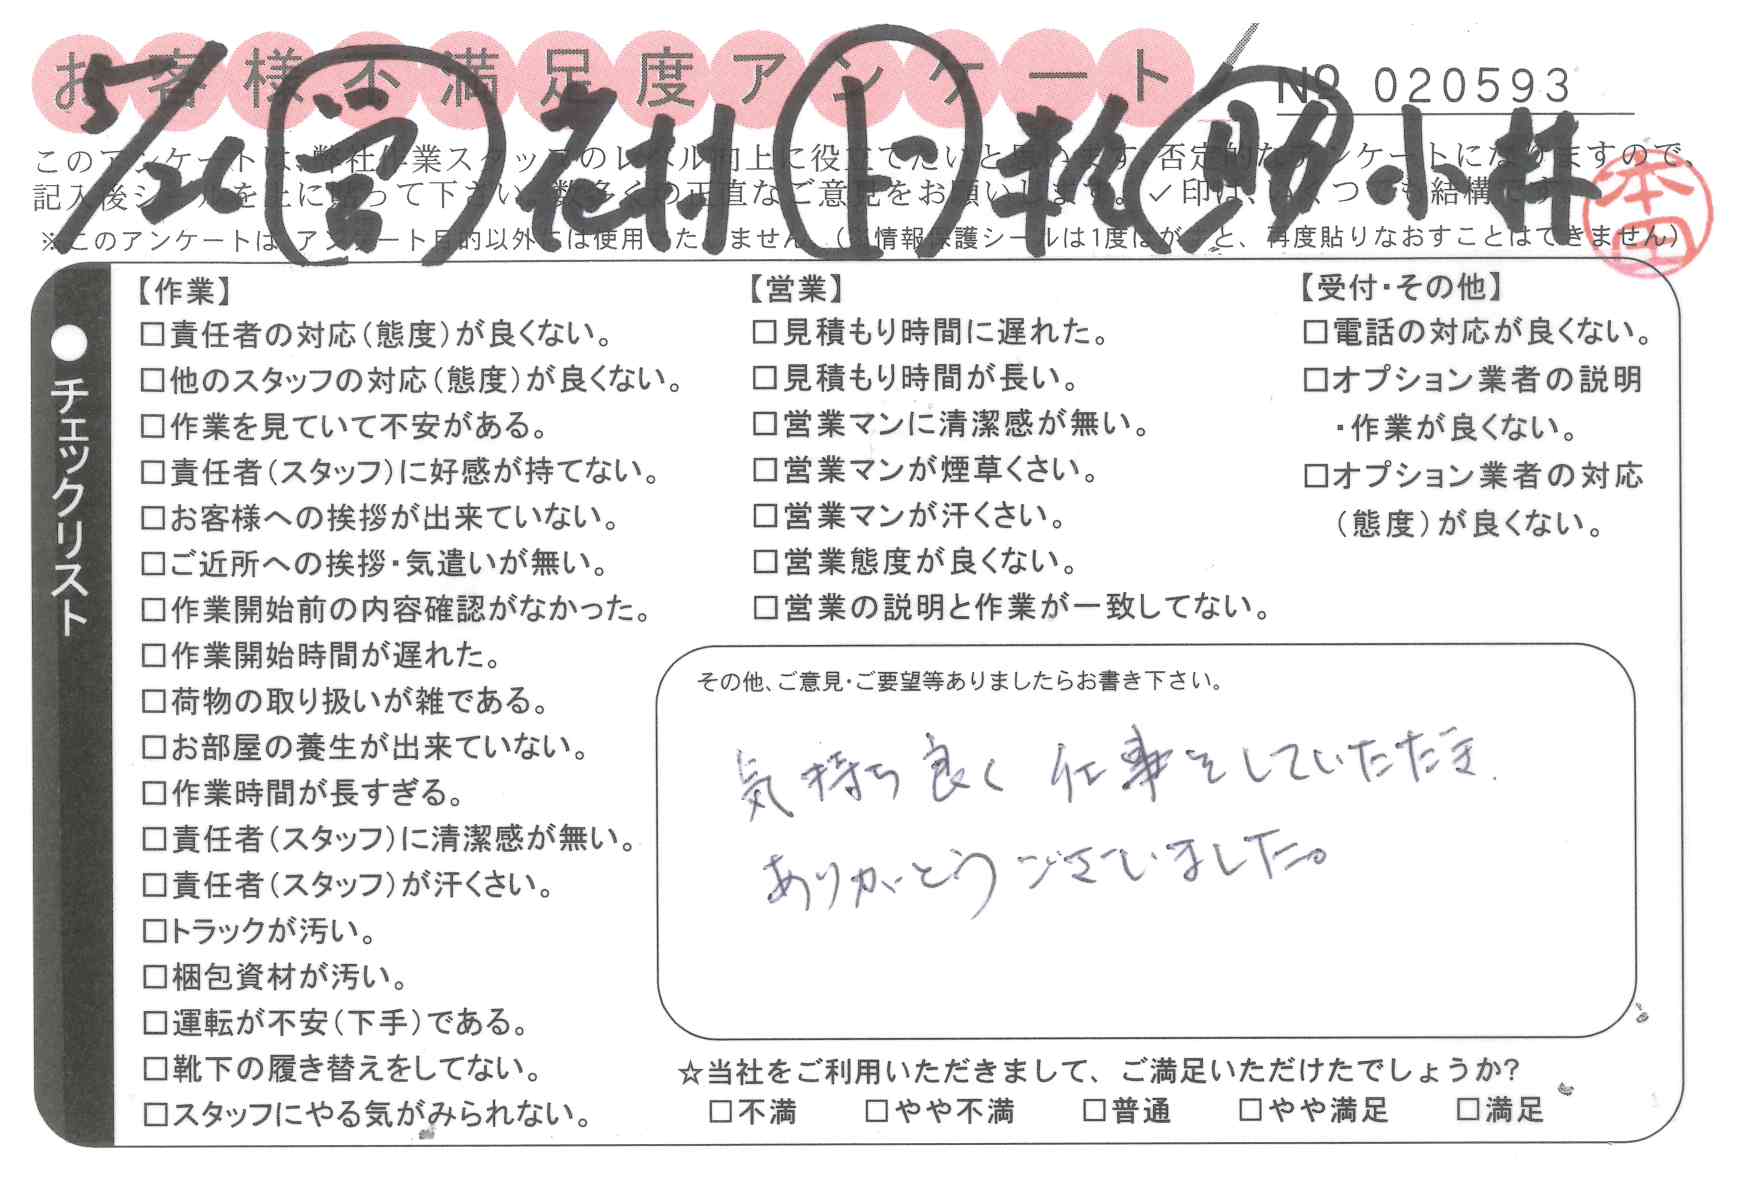 お客様不満足度アンケート
№ 020593
5/26 営 花村 上 乾 助 小林
本田
このアンケートは、弊社作業スタッフのレベル向上に役立てたいと思います。否定的なアンケートになりますので、
記入後シールを上に貼って下さい。数多くの正直なご意見をお願いします。✓印は、いくつでも結構です。
※このアンケートは、アンケート目的以外には使用いたしません。(※情報保護シールは1度はがすと、再度貼りなおすことはできません)
●チェックリスト
【作業】
□責任者の対応(態度)が良くない。
□他のスタッフの対応(態度)が良くない。
□作業を見ていて不安がある。
□責任者(スタッフ)に好感が持てない。
□お客様への挨拶が出来ていない。
□ご近所への挨拶・気遣いが無い。
□作業開始前の内容確認がなかった。
□作業開始時間が遅れた。
□荷物の取り扱いが雑である。
□お部屋の養生が出来ていない。
□作業時間が長すぎる。
□責任者(スタッフ)に清潔感が無い。
□責任者(スタッフ)が汗くさい。
□トラックが汚い。
□梱包資材が汚い。
□運転が不安(下手)である。
□靴下の履き替えをしてない。
□スタッフにやる気がみられない。
【営業】
□見積もり時間に遅れた。
□見積もり時間が長い。
□営業マンに清潔感が無い。
□営業マンが煙草くさい。
□営業マンが汗くさい。
□営業態度が良くない。
□営業の説明と作業が一致してない。
【受付・その他】
□電話の対応が良くない。
□オプション業者の説明
・作業が良くない。
□オプション業者の対応
(態度)が良くない。
その他、ご意見・ご要望等ありましたらお書き下さい。
気持ち良く仕事をしていただき
ありがとうございました。
☆当社をご利用いただきまして、ご満足いただけたでしょうか?
□不満 □やや不満 □普通 □やや満足 □満足